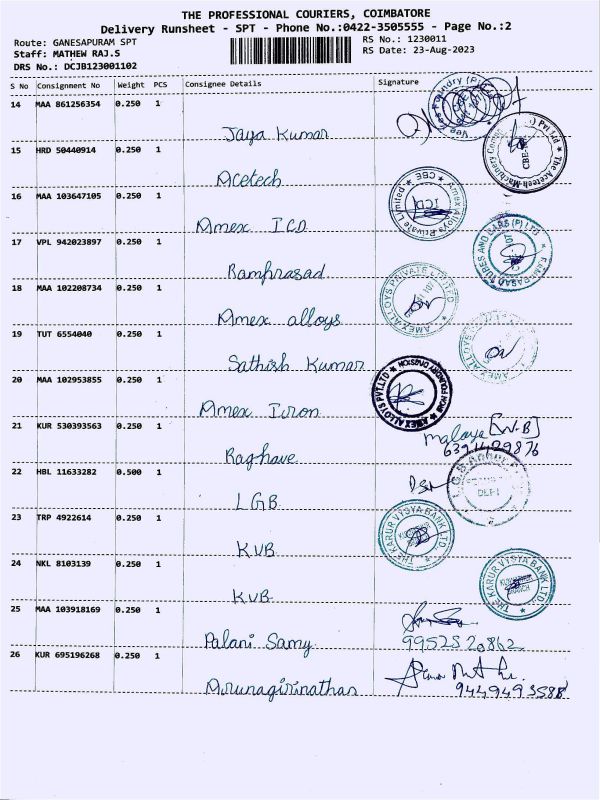 THE PROFESSIONAL COURIERS, COIMBATORE
Delivery Runsheet - SPT - Phone No.:0422-3505555 - Page No.:2
Route: GANESAPURAM SPT RS No.: 1230011
Staff: MATHEW RAJ.S RS Date: 23-Aug-2023
DRS No.: DCJB123001102
S No Consignment No Weight PCS Consignee Details Signature
14 MAA 861256354 0.250 1
Jaya Kumar
15 HRD 50440914 0.250 1
Acetech
16 MAA 103647105 0.250 1
Amex ICD
17 VPL 942023897 0.250 1
Ramprasad
18 MAA 102208734 0.250 1
Amex alloys
19 TUT 6554040 0.250 1
Sathish Kumar
20 MAA 102953855 0.250 1
Amex Iron
21 KUR 530393563 0.250 1
Raghave
[W.B]
22 HBL 11633282 0.500 1
LGB
23 TRP 4922614 0.250 1
KVB
THE KARUR VYSYA BANK LTD.
24 NKL 8103139 0.250 1
KVB
THE KARUR VYSYA BANK LTD.
25 MAA 103918169 0.250 1
Palani Samy
9952520862
26 KUR 695196268 0.250 1
Arunagirinathan
9449493588